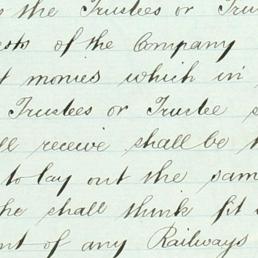 the Trustees or
of the Company
monies which in
Trustees or Trustee
receive shall be
to lay out the
he shall think fit
of any Railways